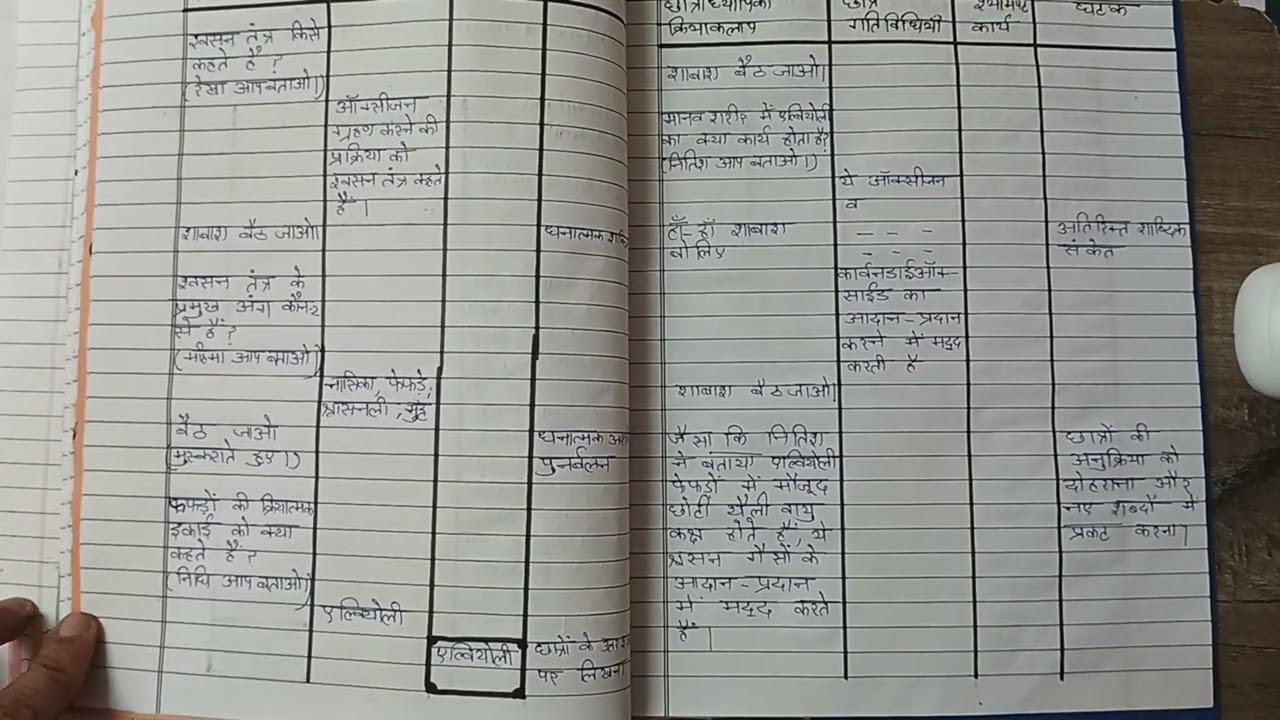 श्वसन तंत्र किसे
कहते है ?
(रेखा आप बताओ।)
ऑक्सीजन
ग्रहण करने की
प्रक्रिया को
श्वसन तंत्र कहते
हैं ।
शाबाश बैठ जाओ।
धनात्मक
श्वसन तंत्र के
प्रमुख अंग कौन-२
से हैं ?
(महिमा आप बताओ)
नासिका, फेफड़े,
श्वासनली, मुंह
बैठ जाओ
मुस्कराते हुए।)
धनात्मक
पुनर्बलन
फफड़ों की क्रियात्मक
इकाई को क्या
कहते हैं ?
(निधि आप बताओ)
एल्वियोली
एल्वियोली
छात्रों के
पर लिखना
छात्राध्यापिका
क्रियाकलाप
छात्र
गतिविधियाँ
श्यामपट्ट
कार्य
घटक
शाबाश बैठ जाओ।
मानव शरीर में एल्वियोली
का क्या कार्य होता है?
(नितिश आप बताओ।)
ये ऑक्सीजन
व
हाँ-हाँ शाबाश
बोलिए
- - -
- - -
अतिरिक्त शाब्दिक
संकेत
कार्बनडाईऑक-
साईड का
आदान-प्रदान
करने में मदद
करती है
शाबाश बैठ जाओ।
जैसा कि नितिश
ने बताया एल्वियोली
फेफड़ों में मौजूद
छोटी थैली वायु
कक्ष होते हैं, ये
श्वसन गैसों के
आदान-प्रदान
में मदद करते
हैं ।
छात्रों की
अनुक्रिया को
दोहराना और
नए शब्दों में
प्रकट करना।